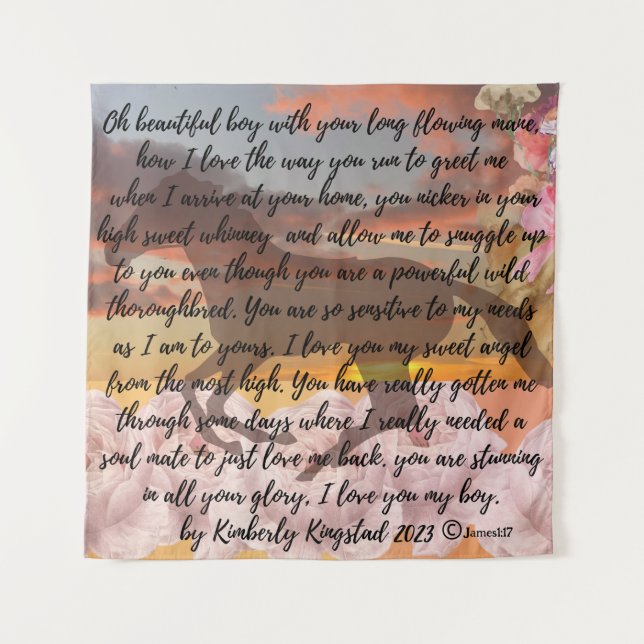 Oh beautiful boy with your long flowing mane,
how I love the way you run to greet me
when I arrive at your home, you nicker in your
high sweet whinney and allow me to snuggle up
to you even though you are a powerful wild
thoroughbred. You are so sensitive to my needs
as I am to yours. I love you my sweet angel
from the most high. You have really gotten me
through some days where I really needed a
soul mate to just love me back, you are stunning
in all your glory, I love you my boy.
by Kimberly Kingstad 2023 © James1:17